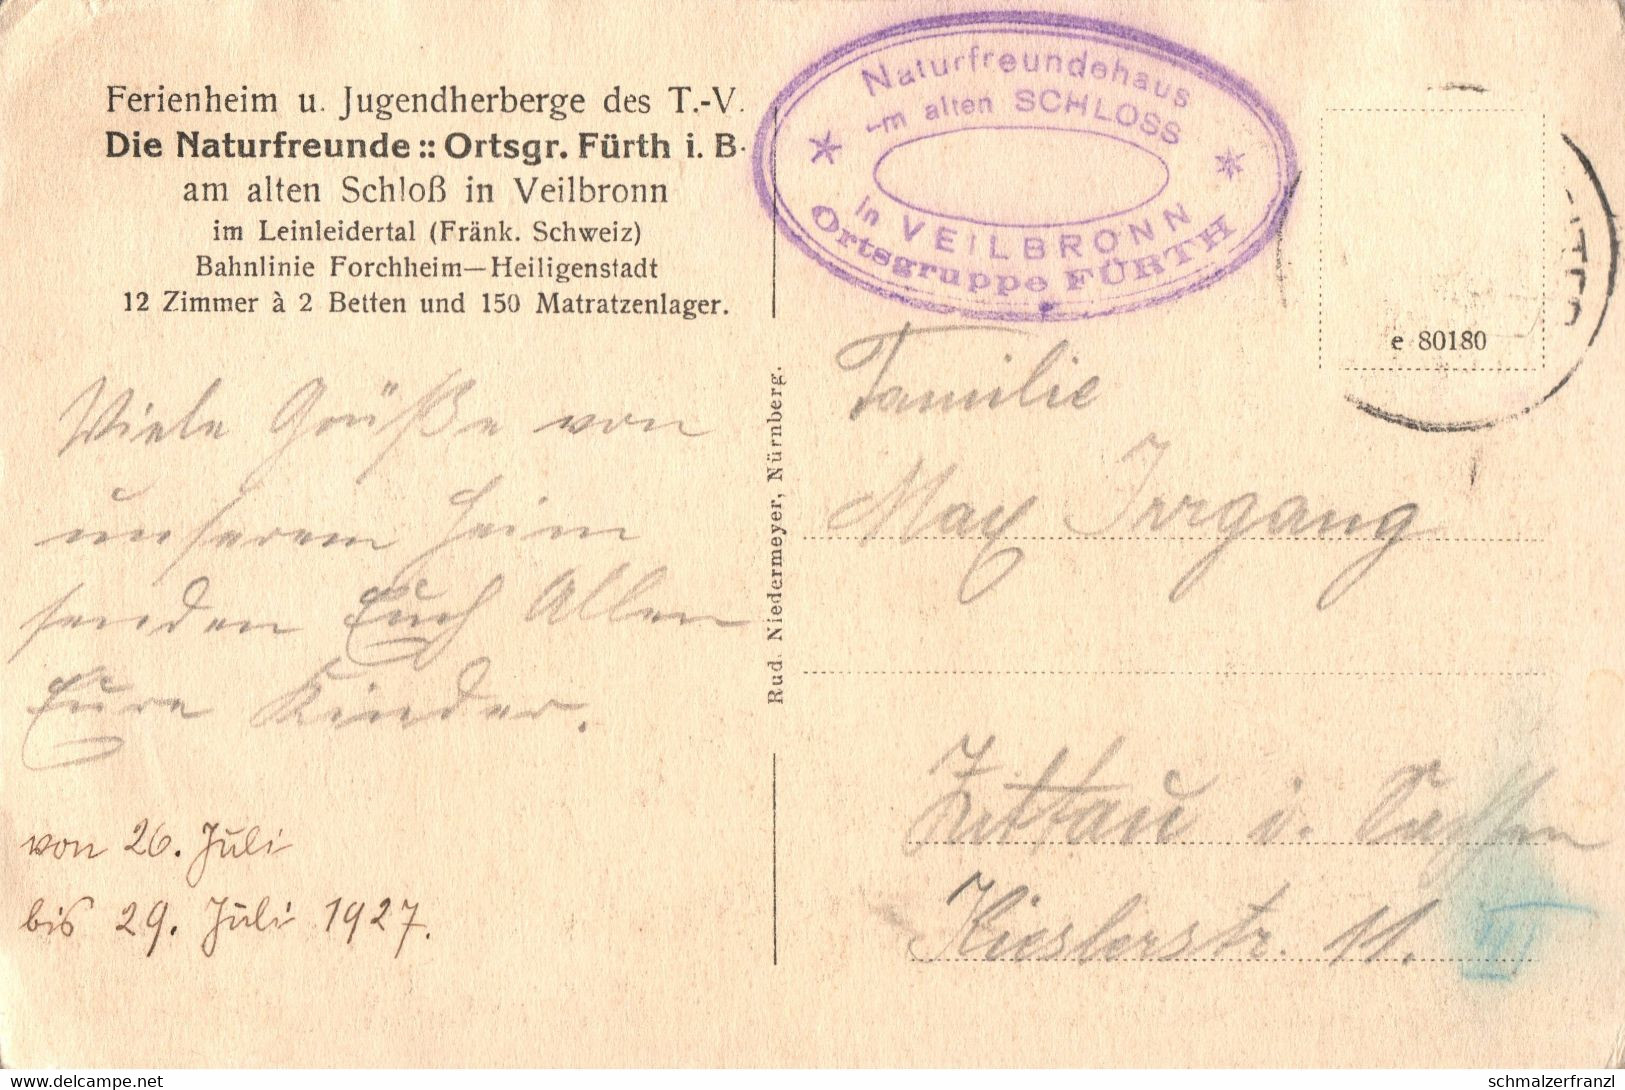 Ferienheim u. Jugendherberge des T.-V.
Die Naturfreunde :: Ortsgr. Fürth i. B.
am alten Schloß in Veilbronn
im Leinleidertal (Fränk. Schweiz)
Bahnlinie Forchheim—Heiligenstadt
12 Zimmer à 2 Betten und 150 Matratzenlager.
Naturfreundehaus
am alten SCHLOSS
in VEILBRONN
Ortsgruppe FÜRTH
e 80180
Viele Grüße von
unserem Heim
senden Euch Allen
Eure Kinder.
von 26. Juli
bis 29. Juli 1927.
Rud. Niedermeyer, Nürnberg.
Familie
Max Irrgang
Zittau i. Sachsen
Kieslerstr. 11. III
www.delcampe.net
schmalzerfranzl